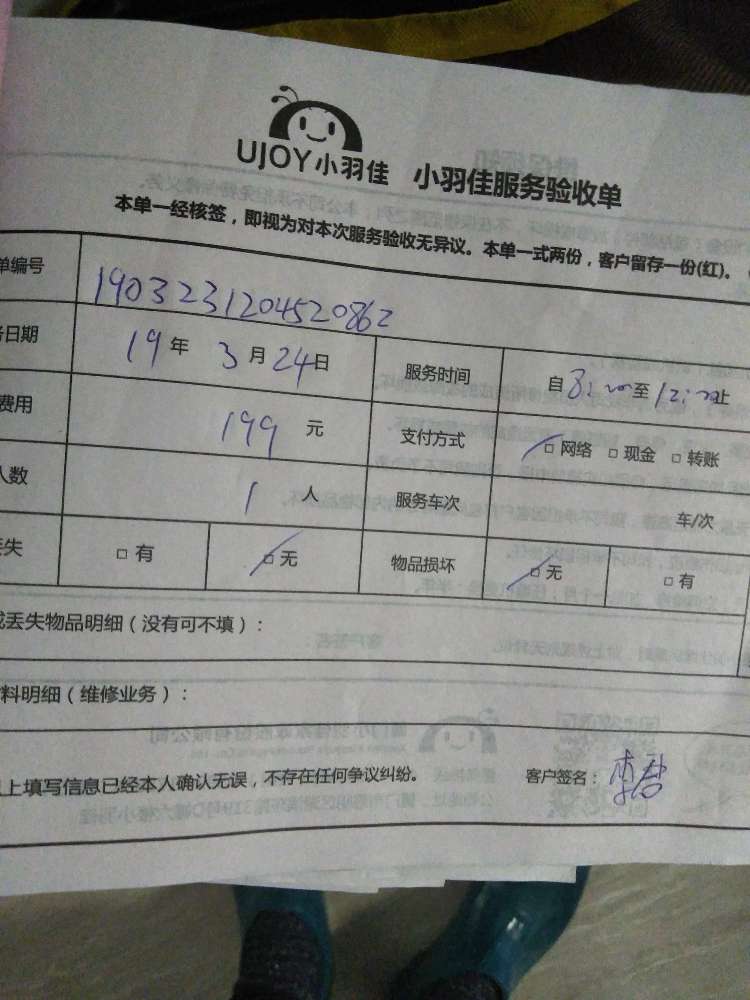 UJOY小羽佳 小羽佳服务验收单
本单一经核签，即视为对本次服务验收无异议。本单一式两份，客户留存一份(红)。
单编号 1903231204520862
日期 19年 3月24日 服务时间 自8:00至12:00止
费用 199 元 支付方式 □网络 □现金 □转账
人数 1 人 服务车次 车/次
丢失 □有 □无 物品损坏 □无 □有
或丢失物品明细（没有可不填）：
料明细（维修业务）：
上填写信息已经本人确认无误，不存在任何争议纠纷。 客户签名：